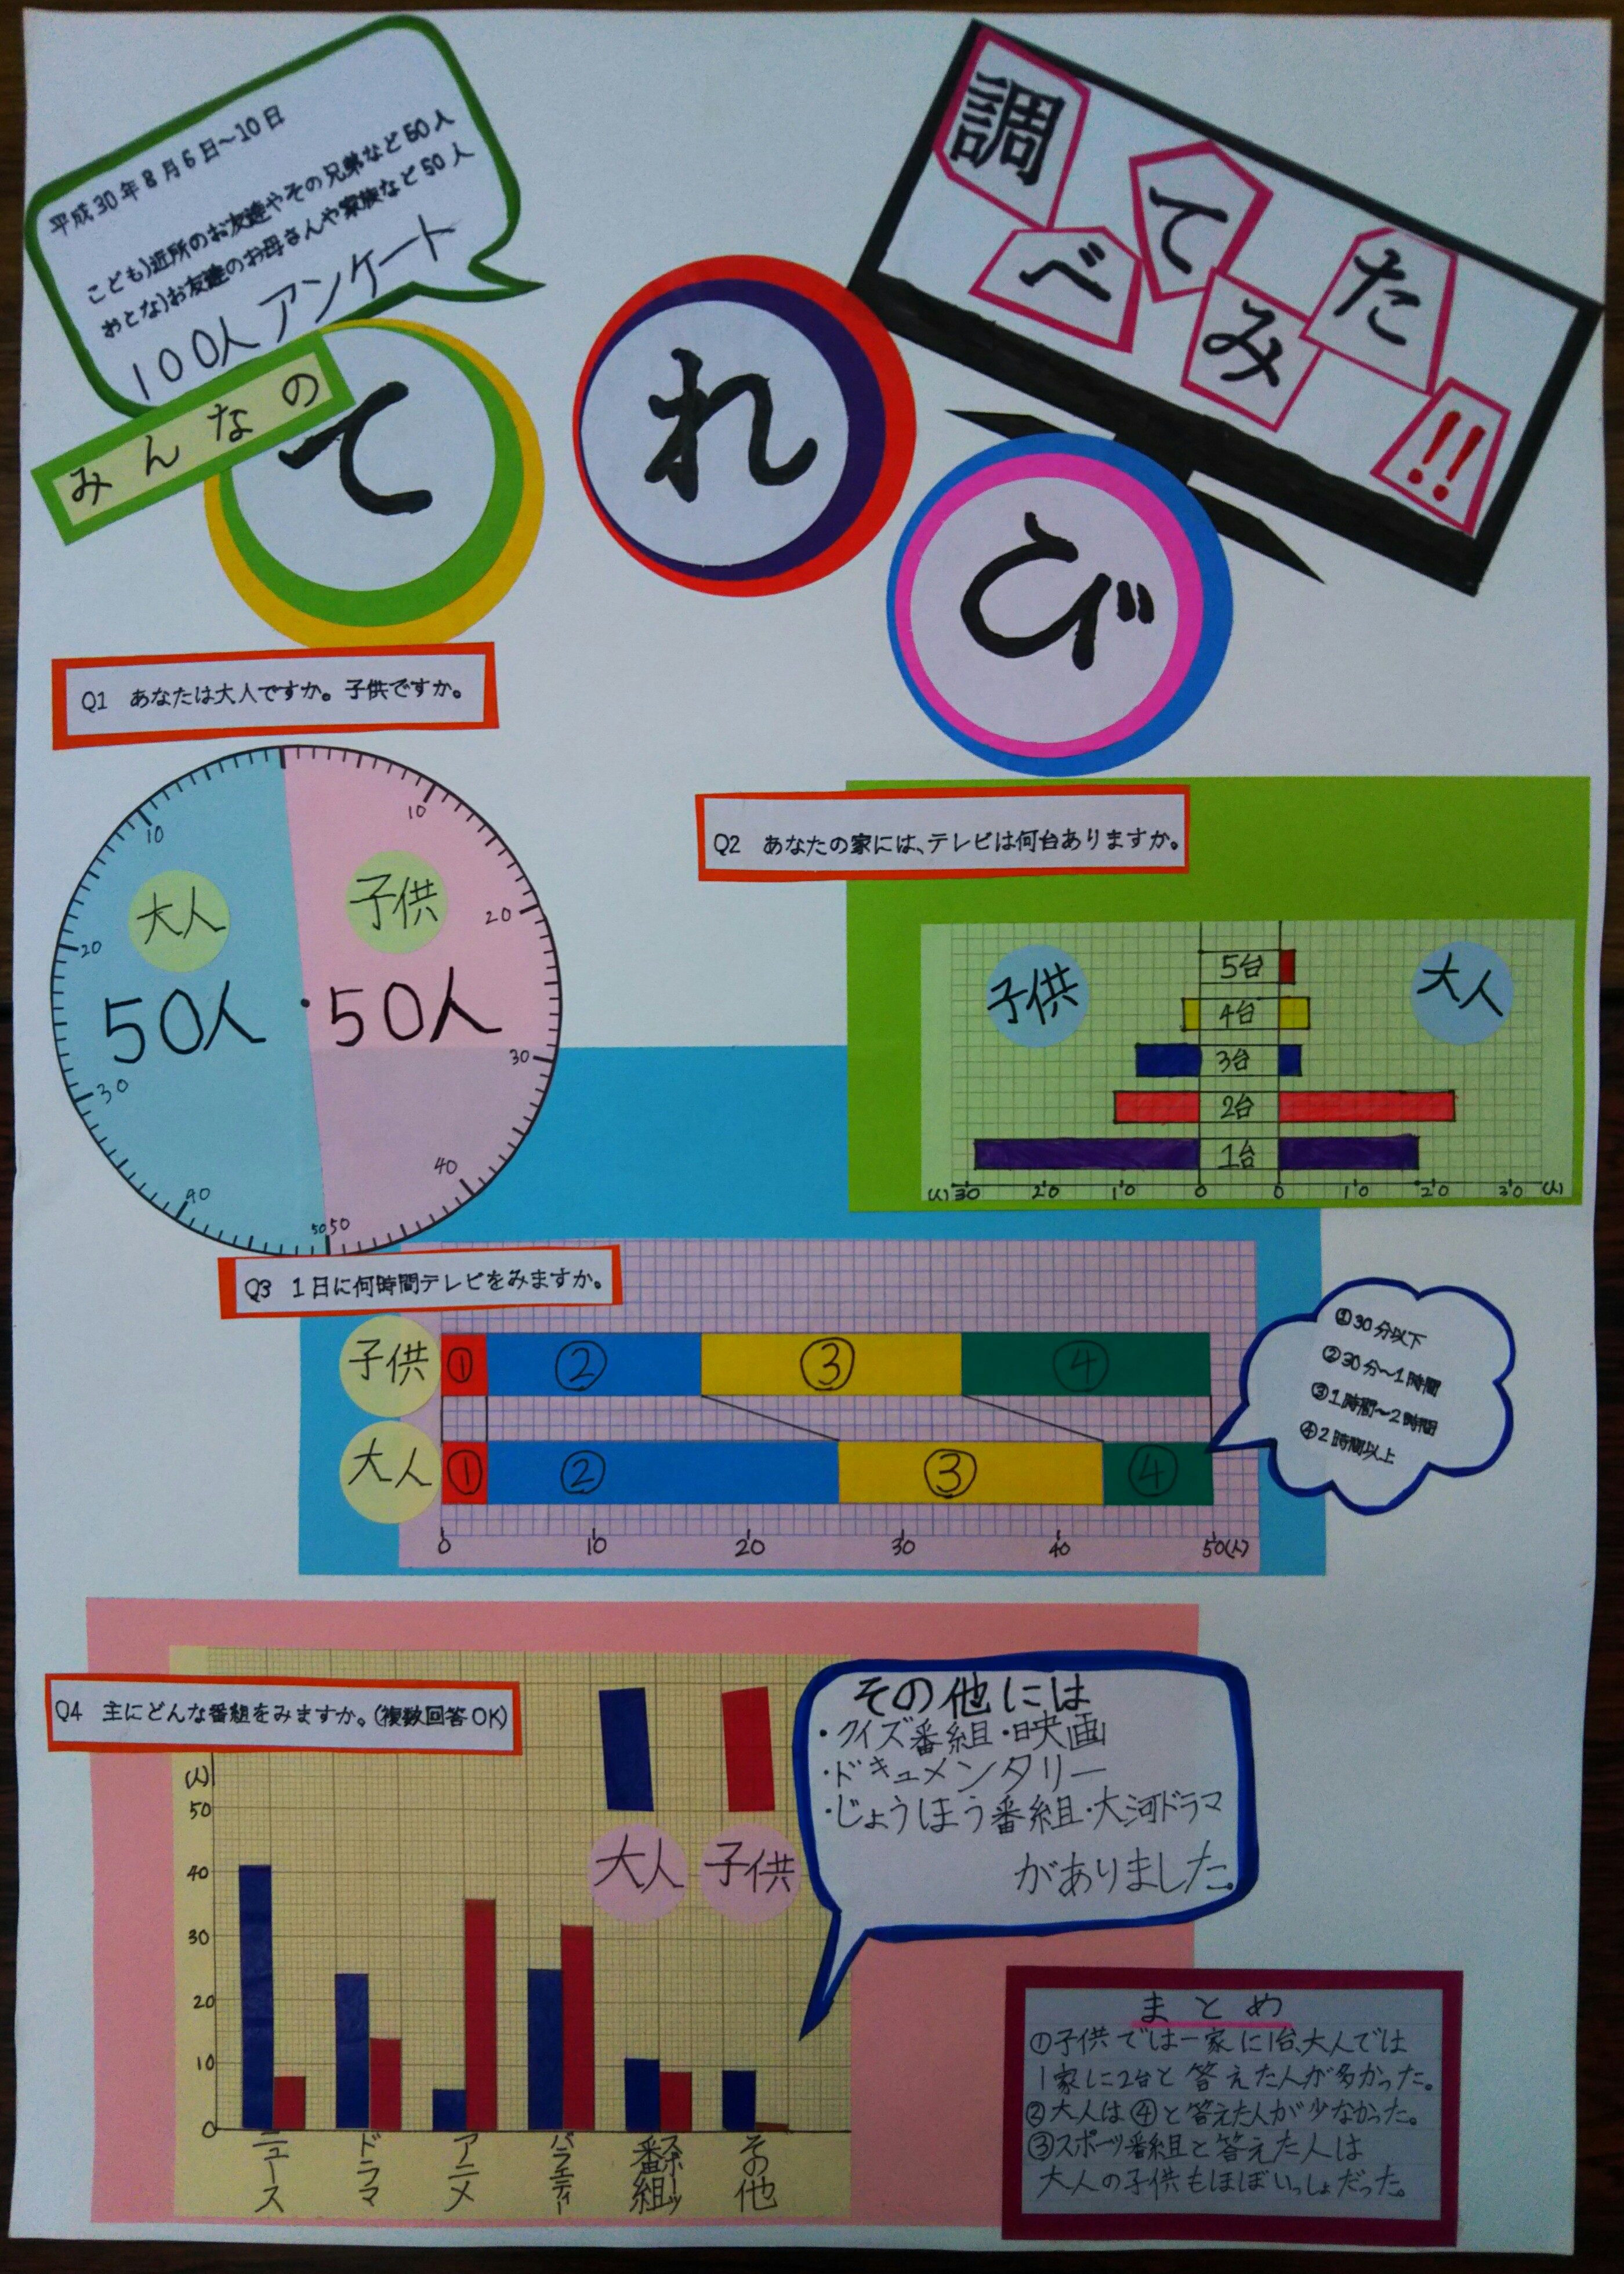 平成30年8月6日～10日
こども)近所のお友達やその兄弟など50人
おとな)お友達のお母さんや家族など50人
100人アンケート
みんなの
てれび
調べてみた!!
Q1 あなたは大人ですか。子供ですか。
大人
50人
子供
50人
10
20
30
40
50
10
20
30
40
50
Q2 あなたの家には、テレビは何台ありますか。
子供
大人
5台
4台
3台
2台
1台
(人)30 20 10 0 0 10 20 30 (人)
Q3 1日に何時間テレビをみますか。
子供 ① ② ③ ④
大人 ① ② ③ ④
0 10 20 30 40 50(人)
①30分以下
②30分～1時間
③1時間～2時間
④2時間以上
Q4 主にどんな番組をみますか。(複数回答OK)
(人)
50
40
30
20
10
0
大人 子供
ニュース
ドラマ
アニメ
バラエティー
スポーツ番組
その他
その他には
・クイズ番組・映画
・ドキュメンタリー
・じょうほう番組・大河ドラマ
がありました。
まとめ
①子供では一家に1台、大人では
1家に2台と答えた人が多かった。
②大人は④と答えた人が少なかった。
③スポーツ番組と答えた人は
大人の子供もほぼいっしょだった。